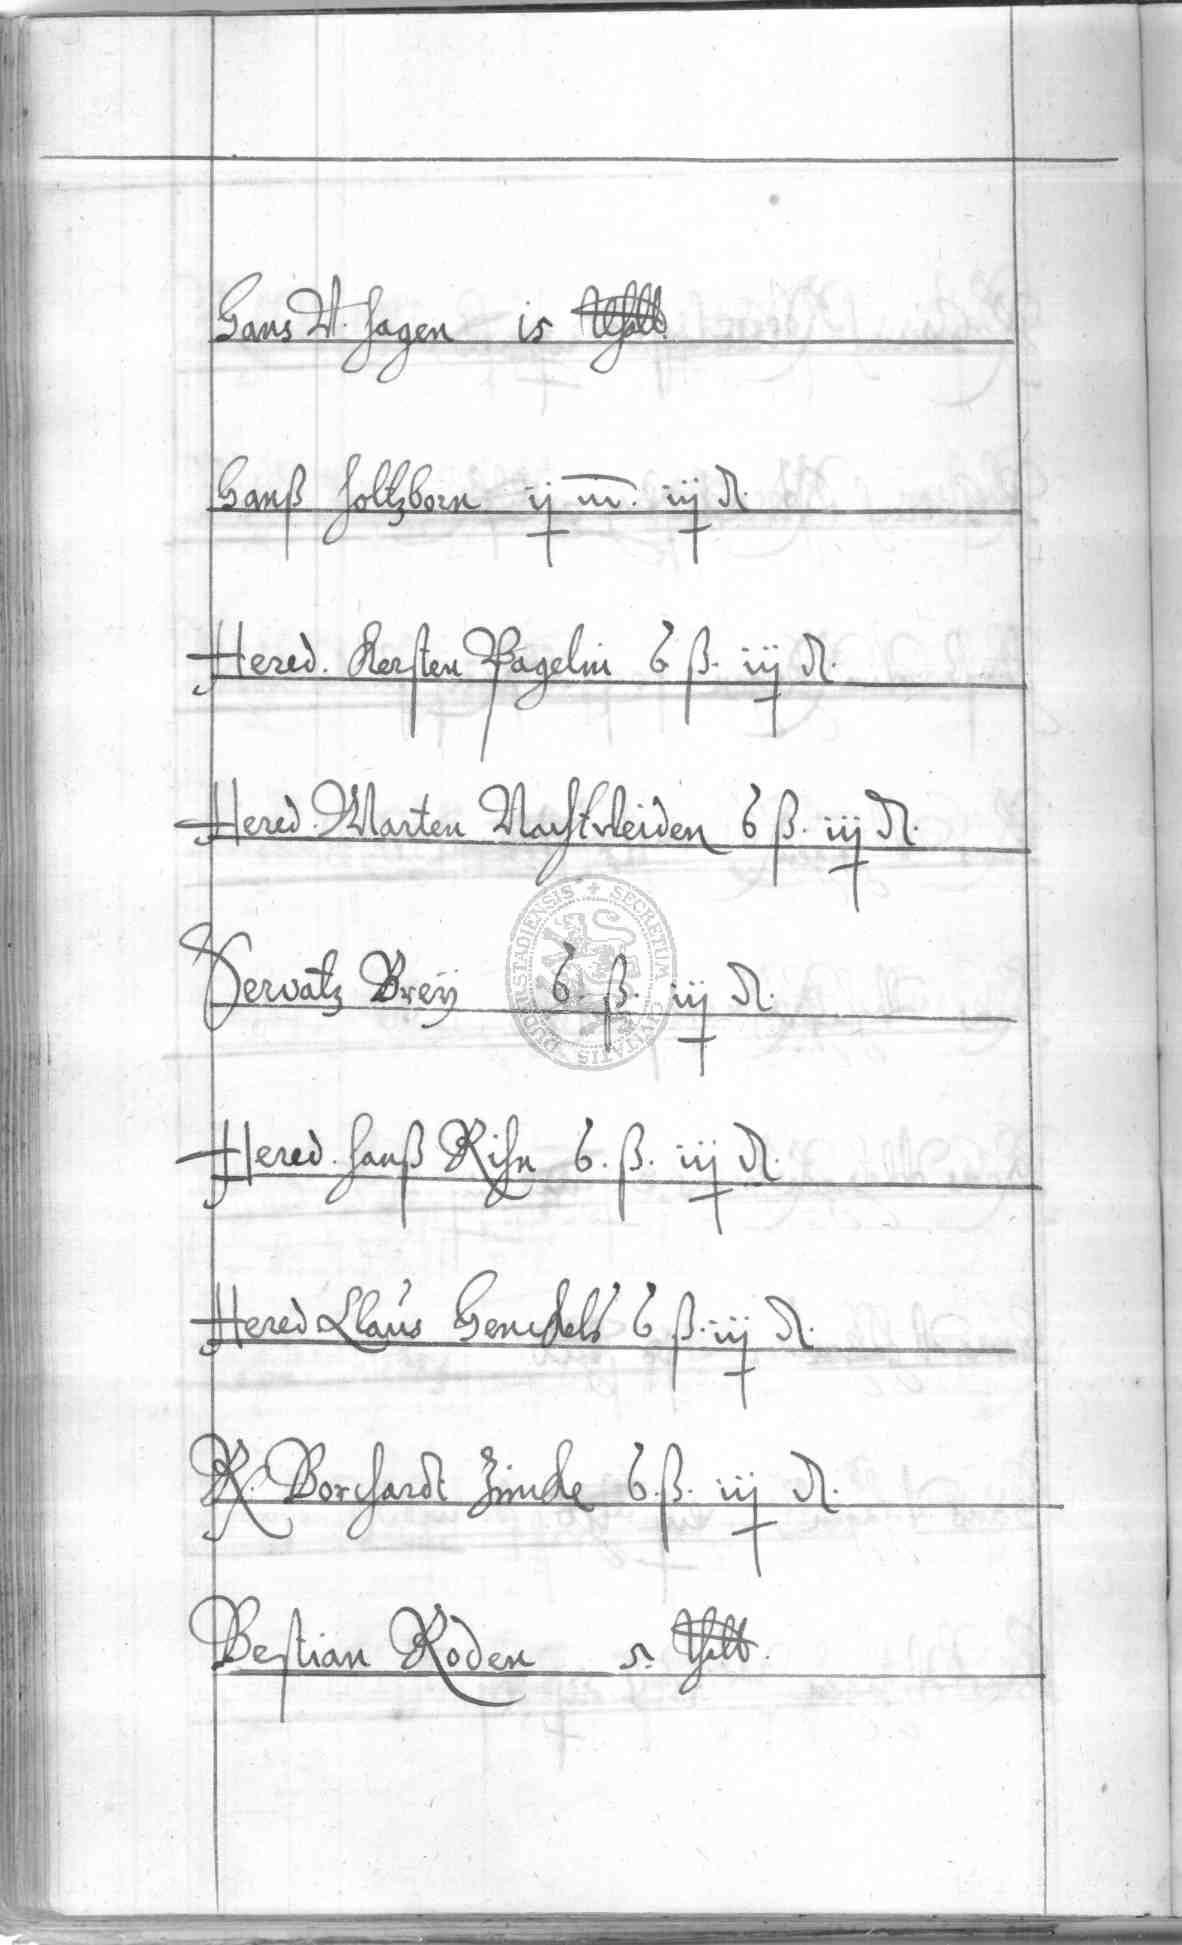 Hans V. Hagen is
Hanß Holtzborn ij m. iij ₰.
Hered. Kersten Pagelin 6 ß. iij ₰.
Hered. Marten Nachtweiden 6 ß. iij ₰.
Servatz Breÿ 6. ß. iij ₰.
DUDERSTADIENSIS + SECRETUM CIVITATIS
Hered. Hanß Rihn 6. ß. iij ₰.
Hered Claus Henckels 6 ß. iij ₰.
R. Borchardt Zincke 6. ß. iij ₰.
Bestian Roden